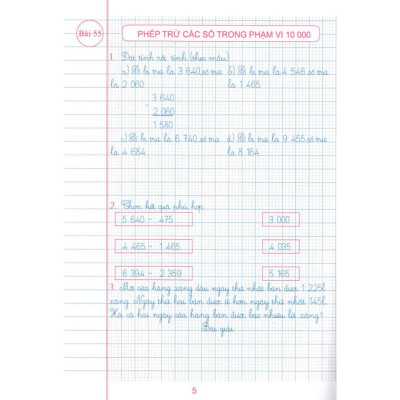 Bài 55
PHÉP TRỪ CÁC SỐ TRONG PHẠM VI 10 000
1. Đặt tính rồi tính (theo mẫu)
a) Số bị trừ là 3 640 số trừ b) Số bị trừ là 4 546 số trừ
là 2 060 là 1 465
3 640
-
2 060
1 580
c) Số bị trừ là 6 740 số trừ d) Số bị trừ là 9 455 số trừ
là 4 684 là 8 164
2. Chọn kết quả phù hợp
5 640 - 475 3 000
4 465 - 1 465 4 035
6 394 - 2 359 5 165
3. Một cửa hàng xăng dầu ngày thứ nhất bán được 1 225l
xăng. Ngày thứ hai bán được ít hơn ngày thứ nhất 145l.
Hỏi cả hai ngày cửa hàng bán được bao nhiêu lít xăng?
Bài giải
5